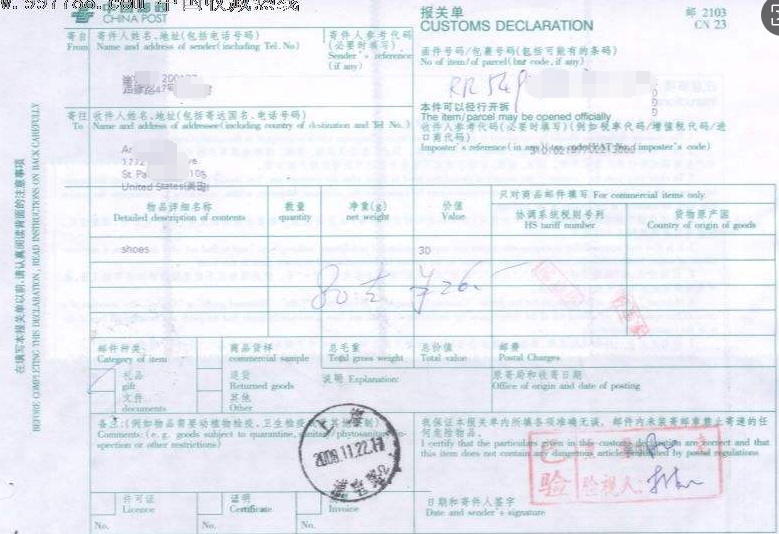 中国邮政
CHINA POST
报关单
CUSTOMS DECLARATION
邮 2103
CN 23
寄自 寄件人姓名、地址(包括电话号码)
From Name and address of sender(including Tel. No.)
寄件人参考代码
(必要时填写)
Sender's reference
(if any)
函件号码/包裹号码(包括可能有的条码)
No of item/of parcel(bar code, if any)
RR 549
本件可以径行开拆
The item/parcel may be opened officially
寄往 收件人姓名、地址(包括寄达国名、电话号码)
To Name and address of addressee(including country of destination and Tel No.)
收件人参考代码(必要时填写)(例如税率代码/增值税代码/进
口商代码)
Imposter's reference(in any)(tax code/VAT No./imposter's code)
St. Pa
United States(美国)
物品详细名称
Detailed description of contents
数量
quantity
净重(g)
net weight
价值
Value
只对商品邮件填写 For commercial items only
协调系统税则号列
HS tariff number
货物原产国
Country of origin of goods
shoes
30
80
邮件种类
Category of item
商品货样
commercial sample
总毛重
Total gross weight
总价值
Total value
邮费
Postal Charges
礼品
gift
退货
Returned goods
说明 Explanation:
原寄局和收寄日期
Office of origin and date of posting
文件
documents
其他
Other
备注:(例如物品需要动植物检疫、卫生检疫或其他限制)
Comments: (e. g. goods subject to quarantine, sanitary/phytosanitary in-
spection or other restrictions)
上海
2009.11.22.11
我保证本报关单内所填各项准确无误，邮件内未装寄邮章禁止寄递的任
何危险物品。
I certify that the particulars given in this customs declaration are correct and that
this item does not contain any dangerous articles prohibited by postal regulations
已
验
验视人:
许可证
Licence
No.
证明
Certificate
No.
发票
Invoice
No.
日期和寄件人签字
Date and sender's signature
在填写本报关单以前,请认真阅读背面的注意事项
BEFORE COMPLETING THIS DECLARATION, READ INSTRUCTIONS ON BACK CAREFULLY